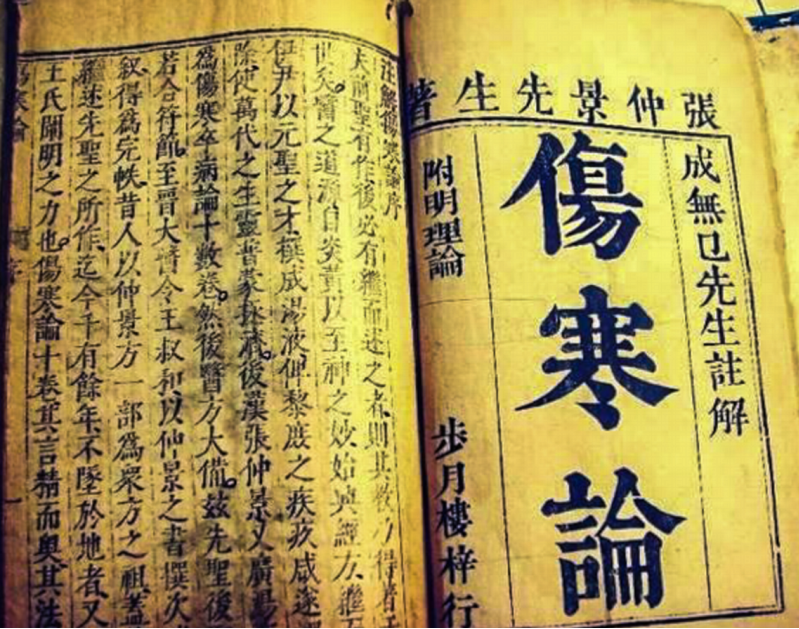 張仲景先生著
成無已先生註解
傷寒論
附明理論
步月樓梓行
注解傷寒論序
夫前聖有作後必有繼而述之者則其教乃得著于
世矣。醫之道源自炎黃以至神之妙始興經方。繼而
伊尹以元聖之才撰成湯液俾黎庶之疾疚咸遂
除使萬代之生靈普蒙拯濟。後漢張仲景又廣湯
為傷寒卒病論十數卷。然後醫方大備。茲先聖後
若合符節。至晉太醫令王叔和以仲景之書撰次
叙得為完帙昔人以仲景方一部為衆方之祖。蓋
繼述先聖之所作。迄今千有餘年不墜於地者又
王氏闡明之力也。傷寒論十卷其言精而奧其法
傷寒論